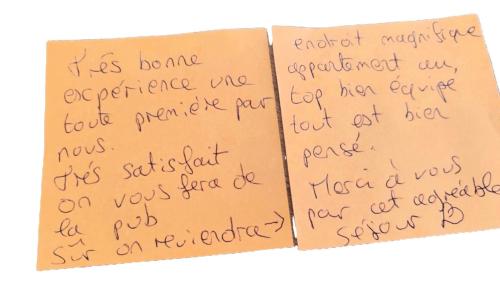 Très bonne
expérience une
toute première par
nous.
Très satisfait
on vous fera de
la pub
Sûr on reviendra →
endroit magnifique
appartement au,
top bien équipe
tout est bien
pensé.
Merci à vous
par cet agréable
séjour